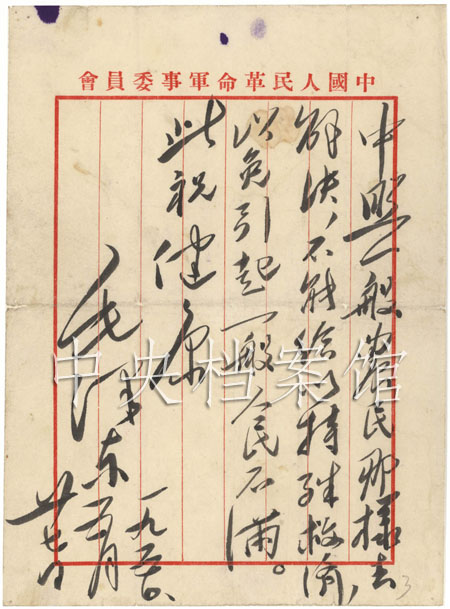 中國人民革命軍事委員會
中照一般農民那樣去
解決,不能給以特殊救濟,
以免引起一般人民不滿。
此祝健康
毛澤東
一九五〇、
五月
廿七日
3
中央档案馆